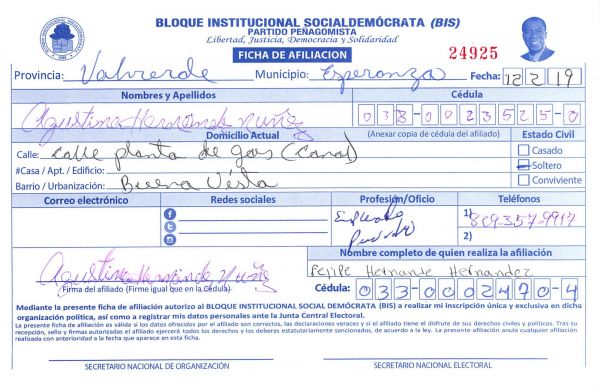 BLOQUE INSTITUCIONAL SOCIALDEMÓCRATA (BIS)
PARTIDO PEÑAGOMISTA
Libertad, Justicia, Democracia y Solidaridad
FICHA DE AFILIACION
24925
Provincia: Valverde Municipio: Esperanza Fecha: 12 2 19
Nombres y Apellidos Cédula
Agustina Hernande Nuñez 033-0023525-0
Domicilio Actual (Anexar copia de cédula del afiliado) Estado Civil
Calle: calle planta de gas (Canal) Casado
#Casa / Apt. / Edificio: Soltero
Barrio / Urbanización: Buena Vista Conviviente
Correo electrónico Redes sociales Profesión/Oficio Teléfonos
Empleado 1) 809-357-9917
2)
Nombre completo de quien realiza la afiliación
Agustina Hernande Nuñez Felipe Hernante Hernandez
Firma del afiliado (Firme igual que en la Cédula) Cédula: 033-0002470-4
Mediante la presente ficha de afiliación autorizo al BLOQUE INSTITUCIONAL SOCIAL DEMÓCRATA (BIS) a realizar mi inscripción única y exclusiva en dicha
organización política, así como a registrar mis datos personales ante la Junta Central Electoral.
La presente ficha de afiliación es válida si los datos ofrecidos por el afiliado son correctos, las declaraciones veraces y si el afiliado tiene el disfrute de sus derechos civiles y políticos. Tras su
recepción, sello y firmas autorizadas el afiliado ejercerá todos los derechos y los deberes estatutariamente sancionados, de acuerdo a la ley. La presente afiliación anula cualquier afiliación
realizada con anterioridad a la fecha que aparece en esta ficha.
SECRETARIO NACIONAL DE ORGANIZACIÓN SECRETARIO NACIONAL ELECTORAL